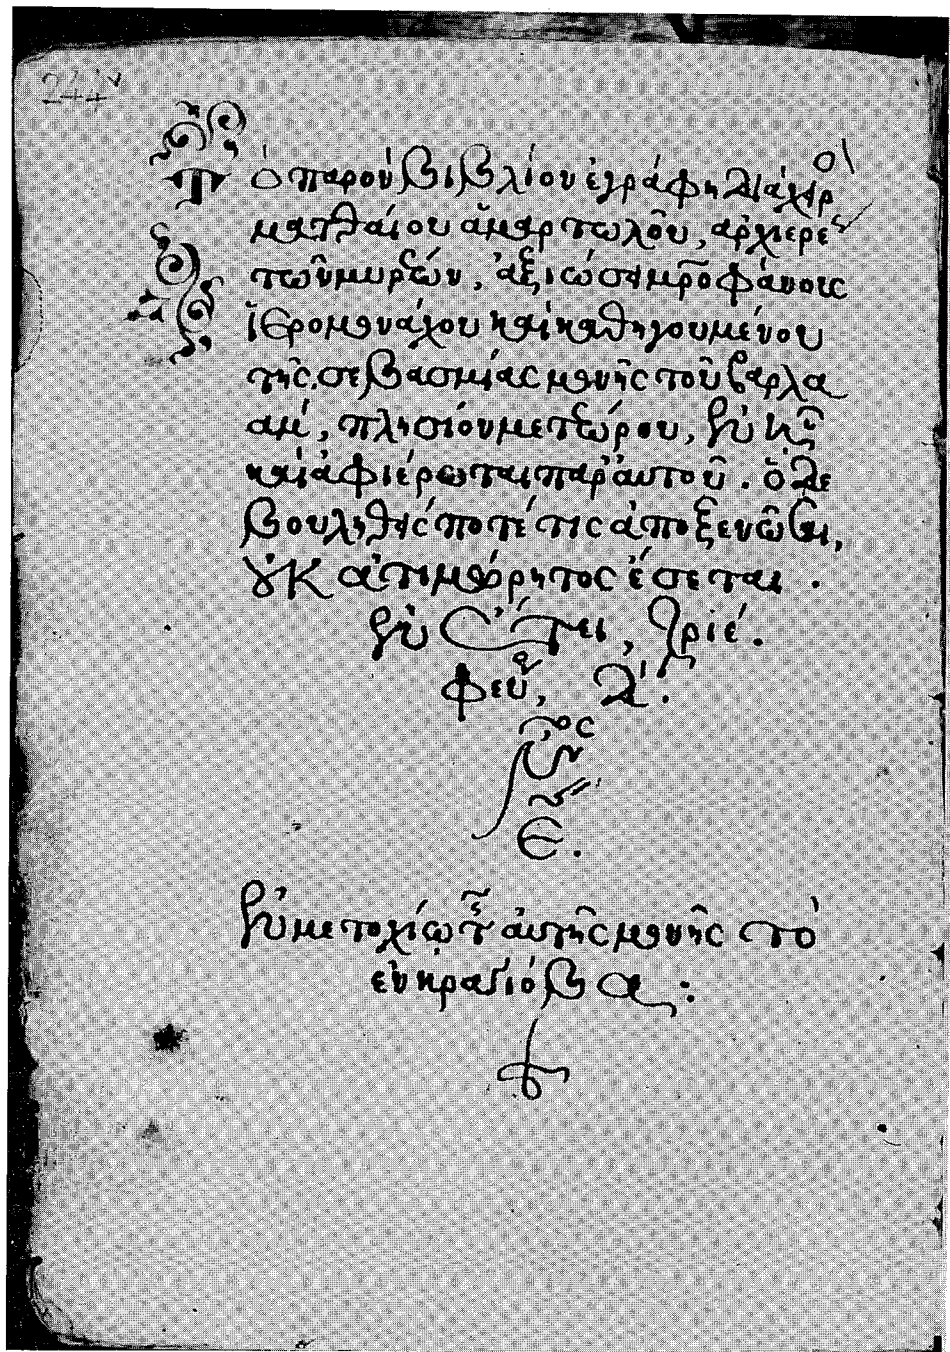 244v
Τὸ παρὸν βιβλίον ἐγράφη διὰ χειρ
ματθαίου ἁμαρτωλοῦ, ἀρχιερέ
τῶν μυρέων, ἀξιώσει μὲν
ἱερομονάχου καὶ καθηγουμένου
τῆς σεβασμίας μονῆς τοῦ βαρλα
ὰμ, πλησίον μετεώρου, ἐν ᾗ
καὶ ἀφιέρωται παρ' αὐτοῦ. ὁ δὲ
βουληθείς ποτέ τις ἀποξενῶσαι,
οὐκ ἀτιμώρητος ἔσεται.
ἐν ἔτει, ζριέ.
φευ, λ´.
ε.
ἐν μετοχίῳ τῆς αὐτῆς μονῆς τὸ
: